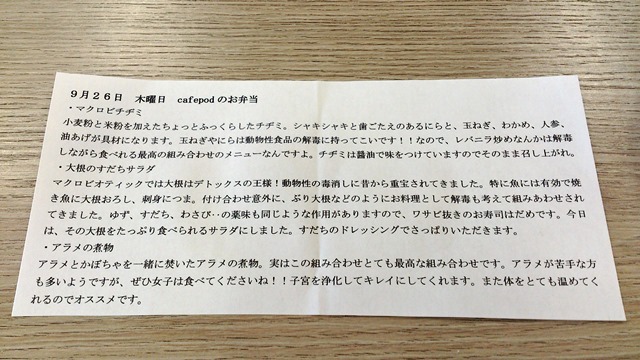 ９月２６日　木曜日　cafepodのお弁当
・マクロビチヂミ
小麦粉と米粉を加えたちょっとふっくらしたチヂミ。シャキシャキと歯ごたえのあるにらと、玉ねぎ、わかめ、人参、
油あげが具材になります。玉ねぎやにらは動物性食品の解毒に持ってこいです！！なので、レバニラ炒めなんかは解毒
しながら食べれる最高の組み合わせのメニューなんですよ。チヂミは醤油で味をつけていますのでそのまま召し上がれ。
・大根のすだちサラダ
マクロビオティックでは大根はデトックスの王様！動物性の毒消しに昔から重宝されてきました。特に魚には有効で焼
き魚に大根おろし、刺身につま。付け合わせ意外に、ぶり大根などのようにお料理として解毒も考えて組みあわせされ
てきました。ゆず、すだち、わさび‥の薬味も同じような作用がありますので、ワサビ抜きのお寿司はだめです。今日
は、その大根をたっぷり食べられるサラダにしました。すだちのドレッシングでさっぱりいただきます。
・アラメの煮物
アラメとかぼちゃを一緒に焚いたアラメの煮物。実はこの組み合わせとても最高な組み合わせです。アラメが苦手な方
も多いようですが、ぜひ女子は食べてくださいね！！子宮を浄化してキレイにしてくれます。また体をとても温めてく
れるのでオススメです。